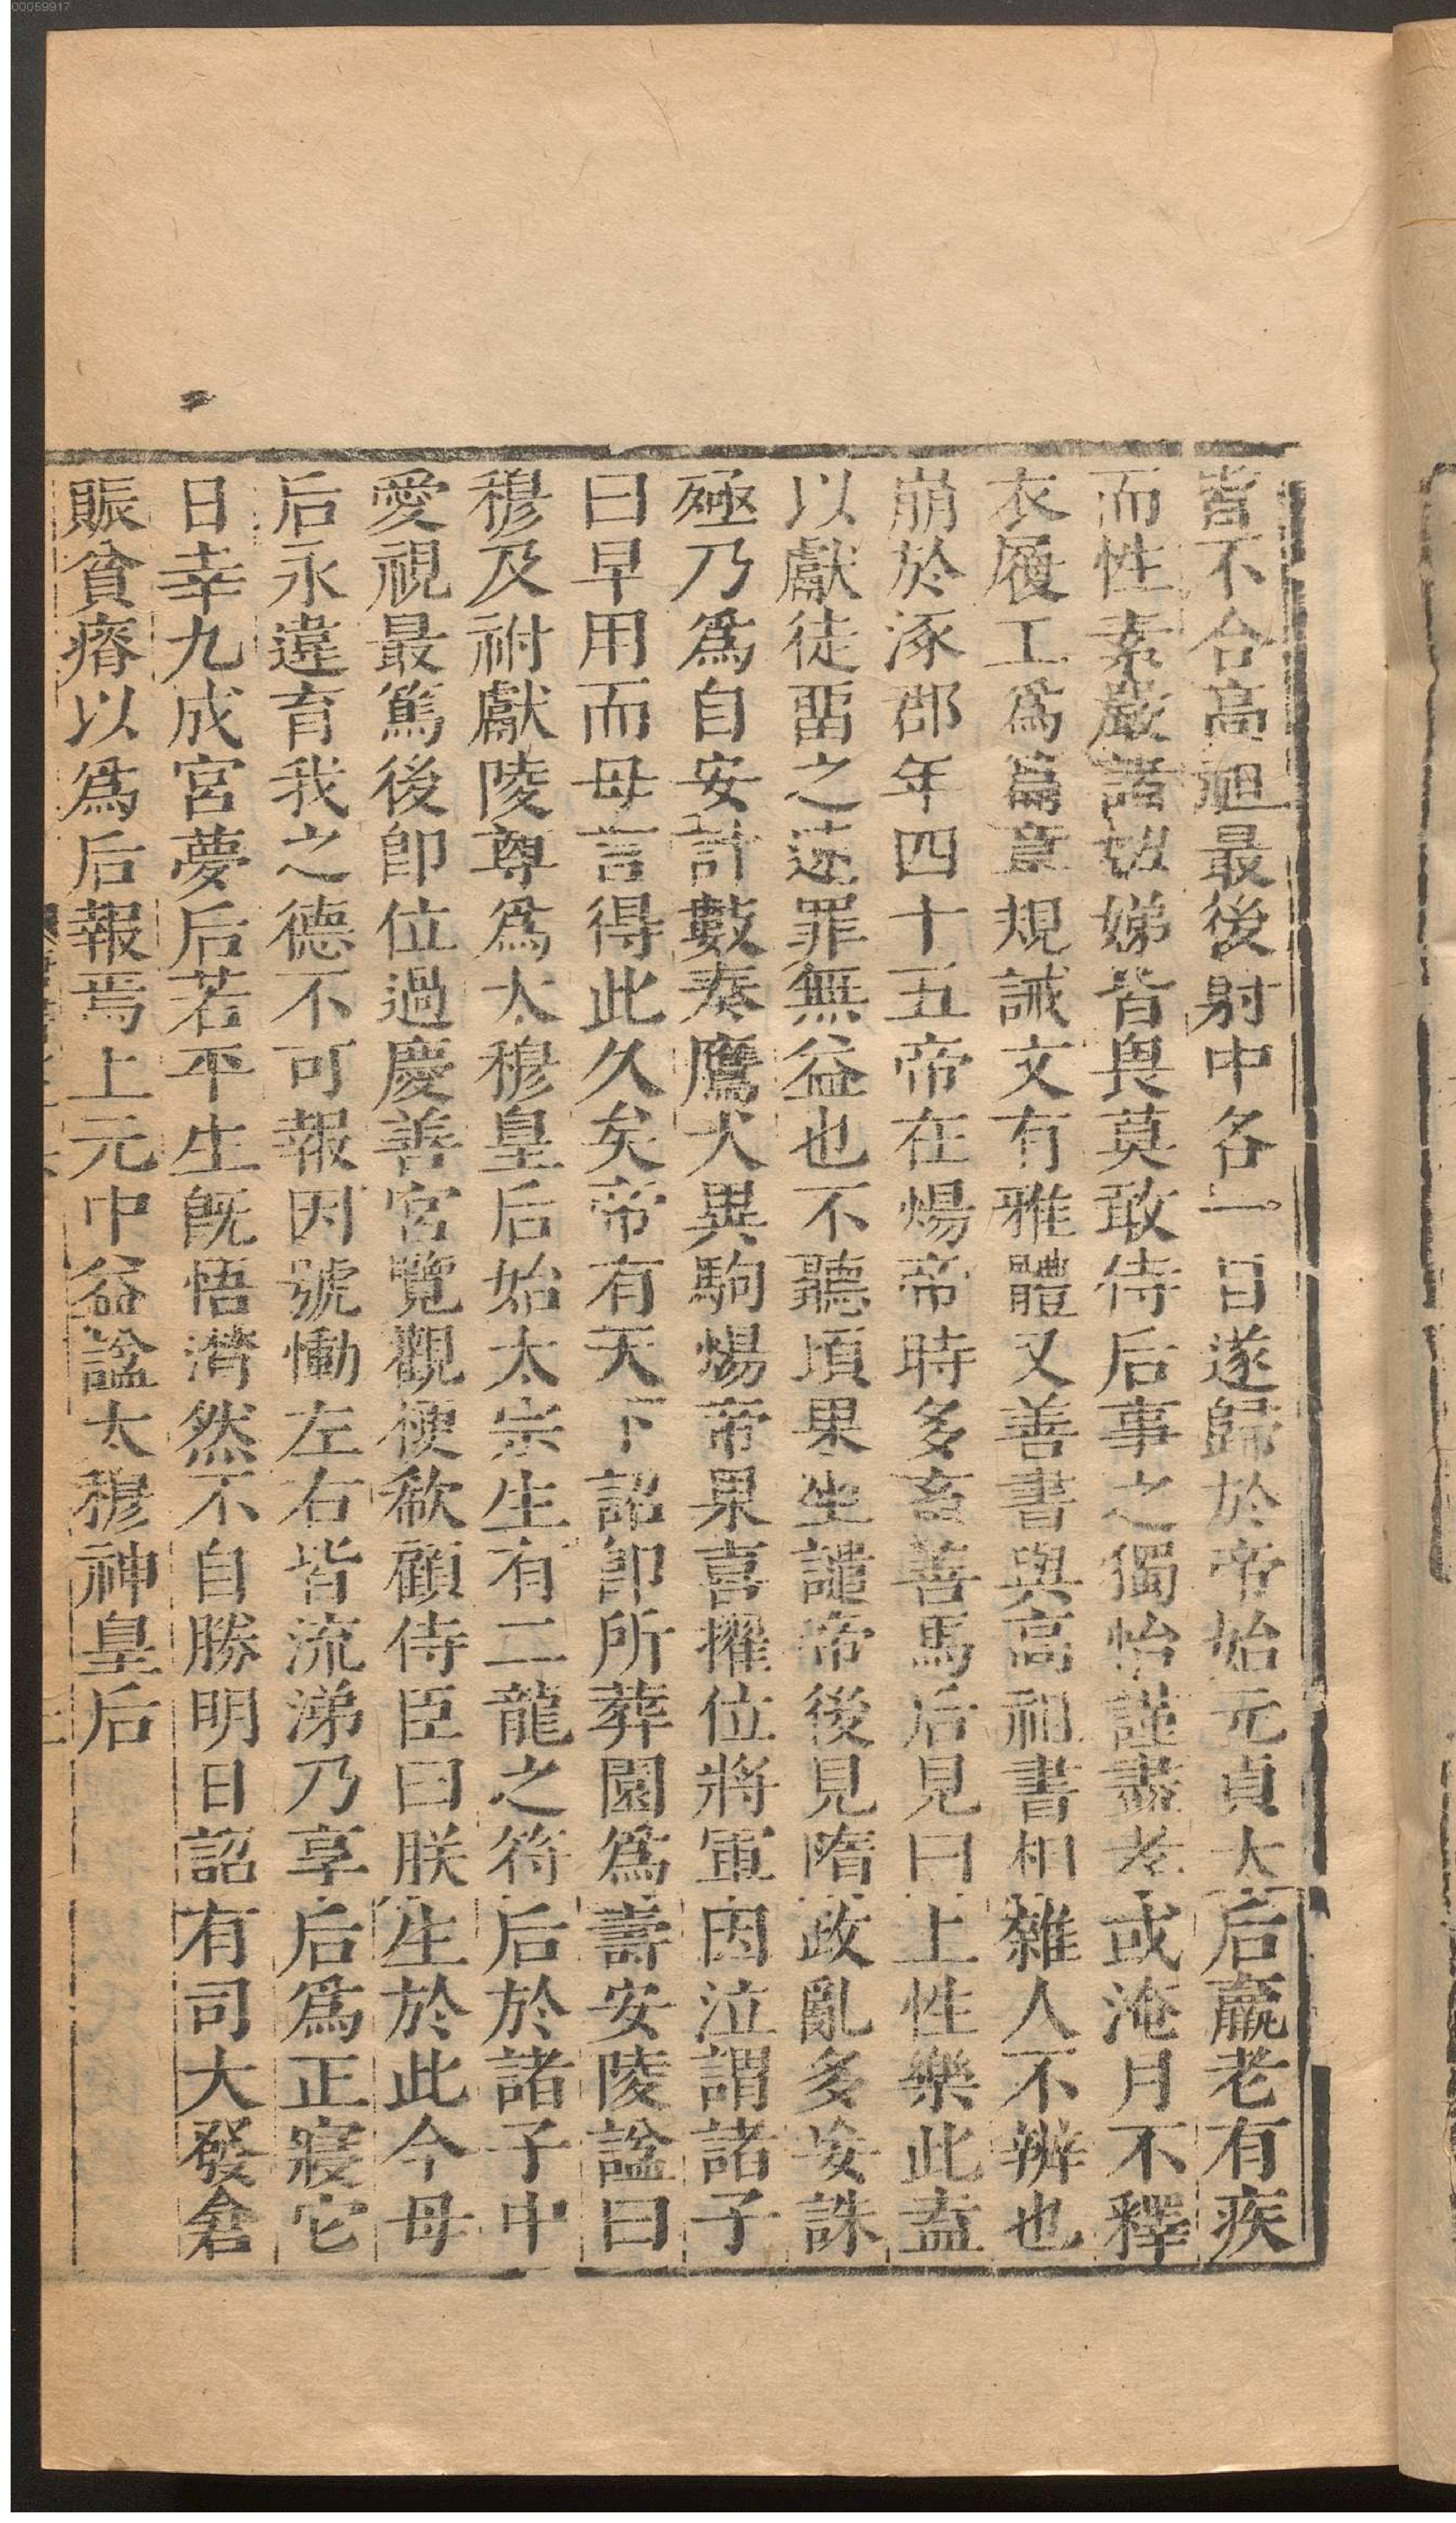 00059917
皆不合高祖最後射中各一目遂歸於帝始元貞太后羸老有疾
而性素嚴諸姒娣皆畏莫敢侍后事之獨怡謹盡孝或淹月不釋
衣履工爲篇章規誡文有雅體又善書與高祖書相雜人不辨也
崩於涿郡年四十五帝在煬帝時多畜善馬后見曰上性樂此盍
以獻徒畱之速罪無益也不聽頃果坐譴帝後見隋政亂多妄誅
殛乃爲自安計數奏鷹犬異駒煬帝果喜擢位將軍因泣謂諸子
曰早用而母言得此久矣帝有天下詔卽所葬園爲壽安陵諡曰
穆及祔獻陵尊爲太穆皇后始太宗生有二龍之符后於諸子中
愛視最篤後卽位過慶善宮覽觀梗欷顧侍臣曰朕生於此今母
后永違育我之德不可報因號慟左右皆流涕乃享后爲正寢它
日幸九成宮夢后若平生旣悟潸然不自勝明日詔有司大發倉
賑貧瘠以爲后報焉上元中益諡太穆神皇后